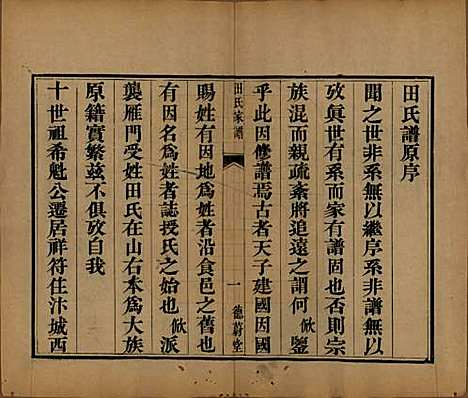 田氏譜原序
聞之世非系無以繼序系非譜無以
攷眞世有系而家有譜固也否則宗
族混而親疏紊將追遠之謂何 㷖鑒
乎此因修譜焉古者天子建國因國
田氏家譜 一 德蔚堂
賜姓有因地爲姓者沿食邑之舊也
有因名爲姓者誌授氏之始也 㷖派
襲雁門受姓田氏在山右本爲大族
原籍實繁茲不俱攷自我
十世祖希魁公遷居祥符住汴城西